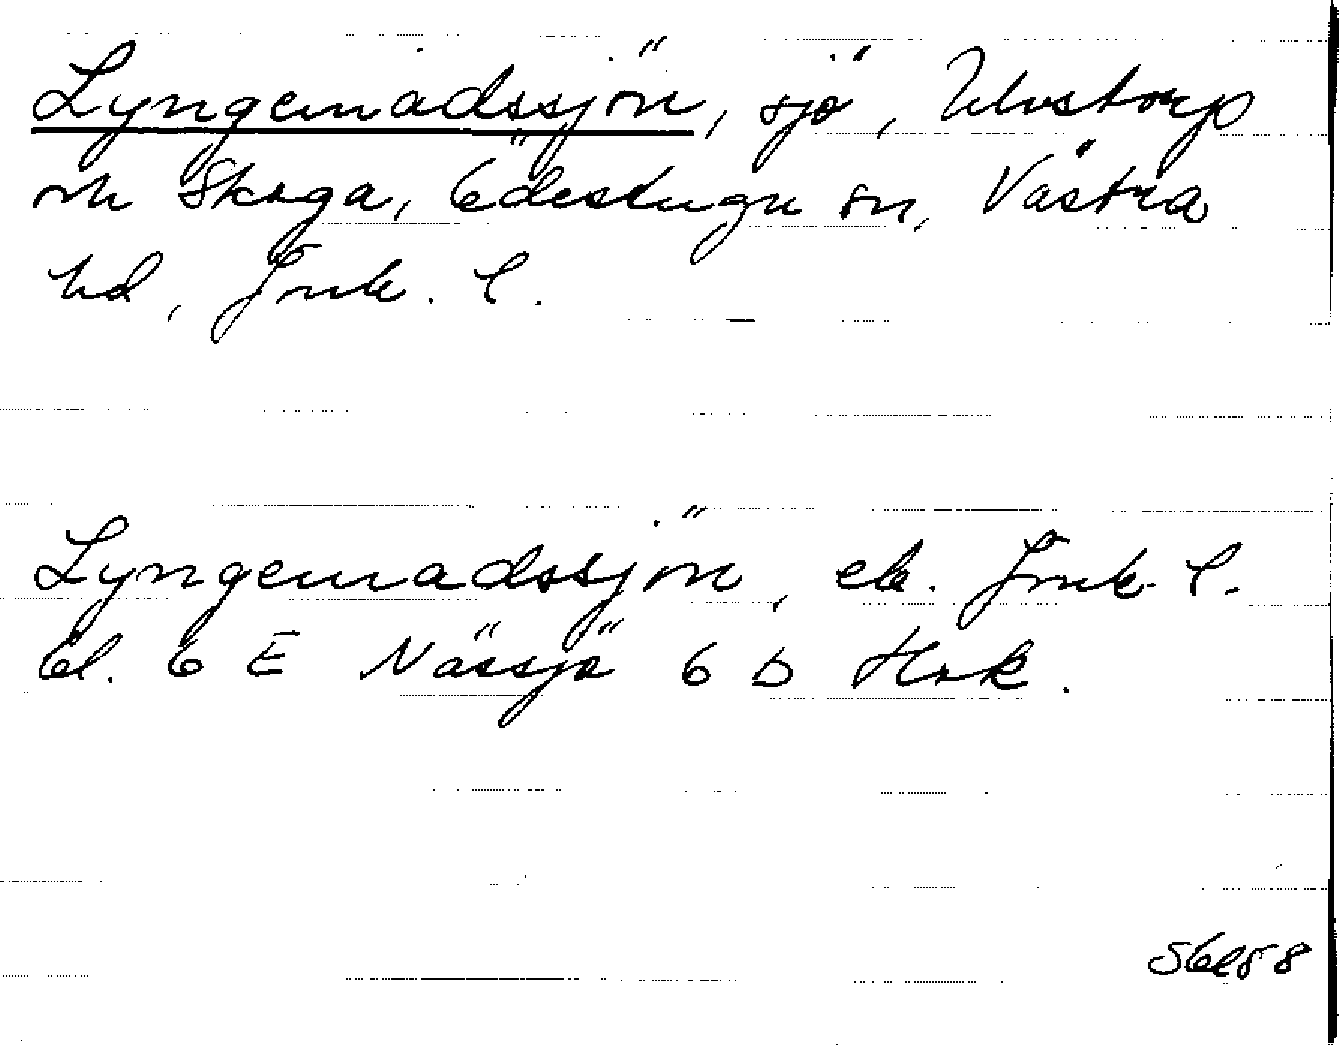 Lyngemadssjön, sjö, Ulvstorp
och Skoga, Ödestugu sn, Västra
hd, Jnk. l.
Lyngemadssjön, ek. Jnk l.
bl. 6 E Nässjö 6 D Hok.